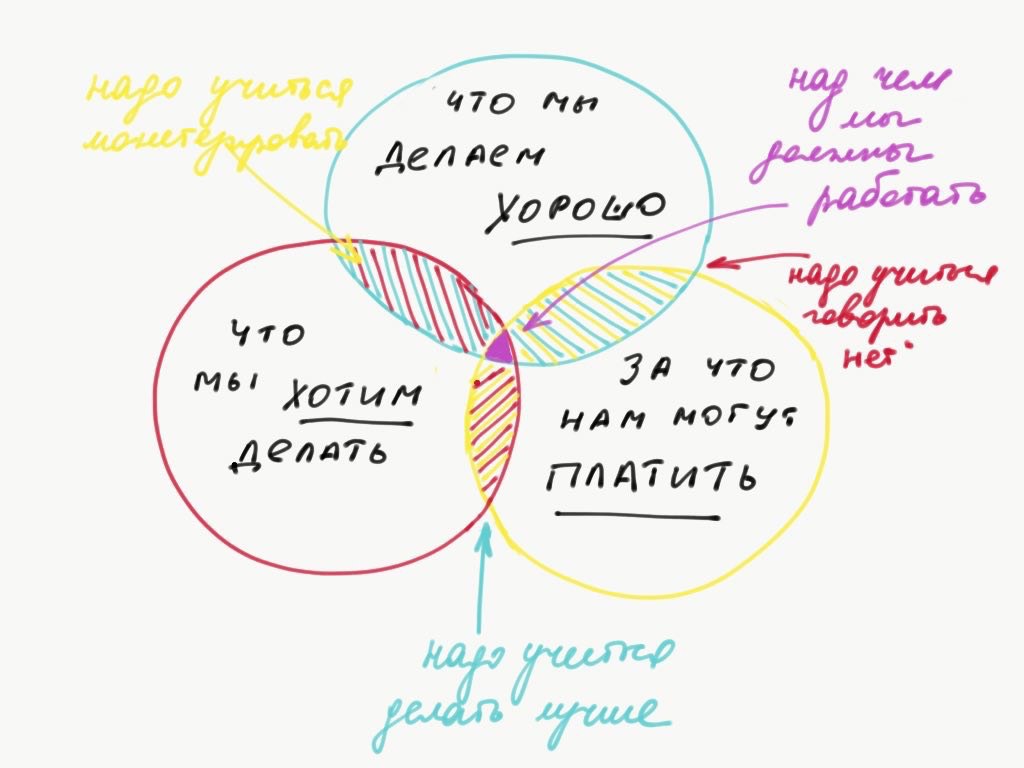 надо учиться
монетезировать
что мы
делаем
хорошо
над чем
мы
должны
работать
надо учиться
говорить
нет
что
мы хотим
делать
за что
нам могут
платить
надо учиться
делать лучше